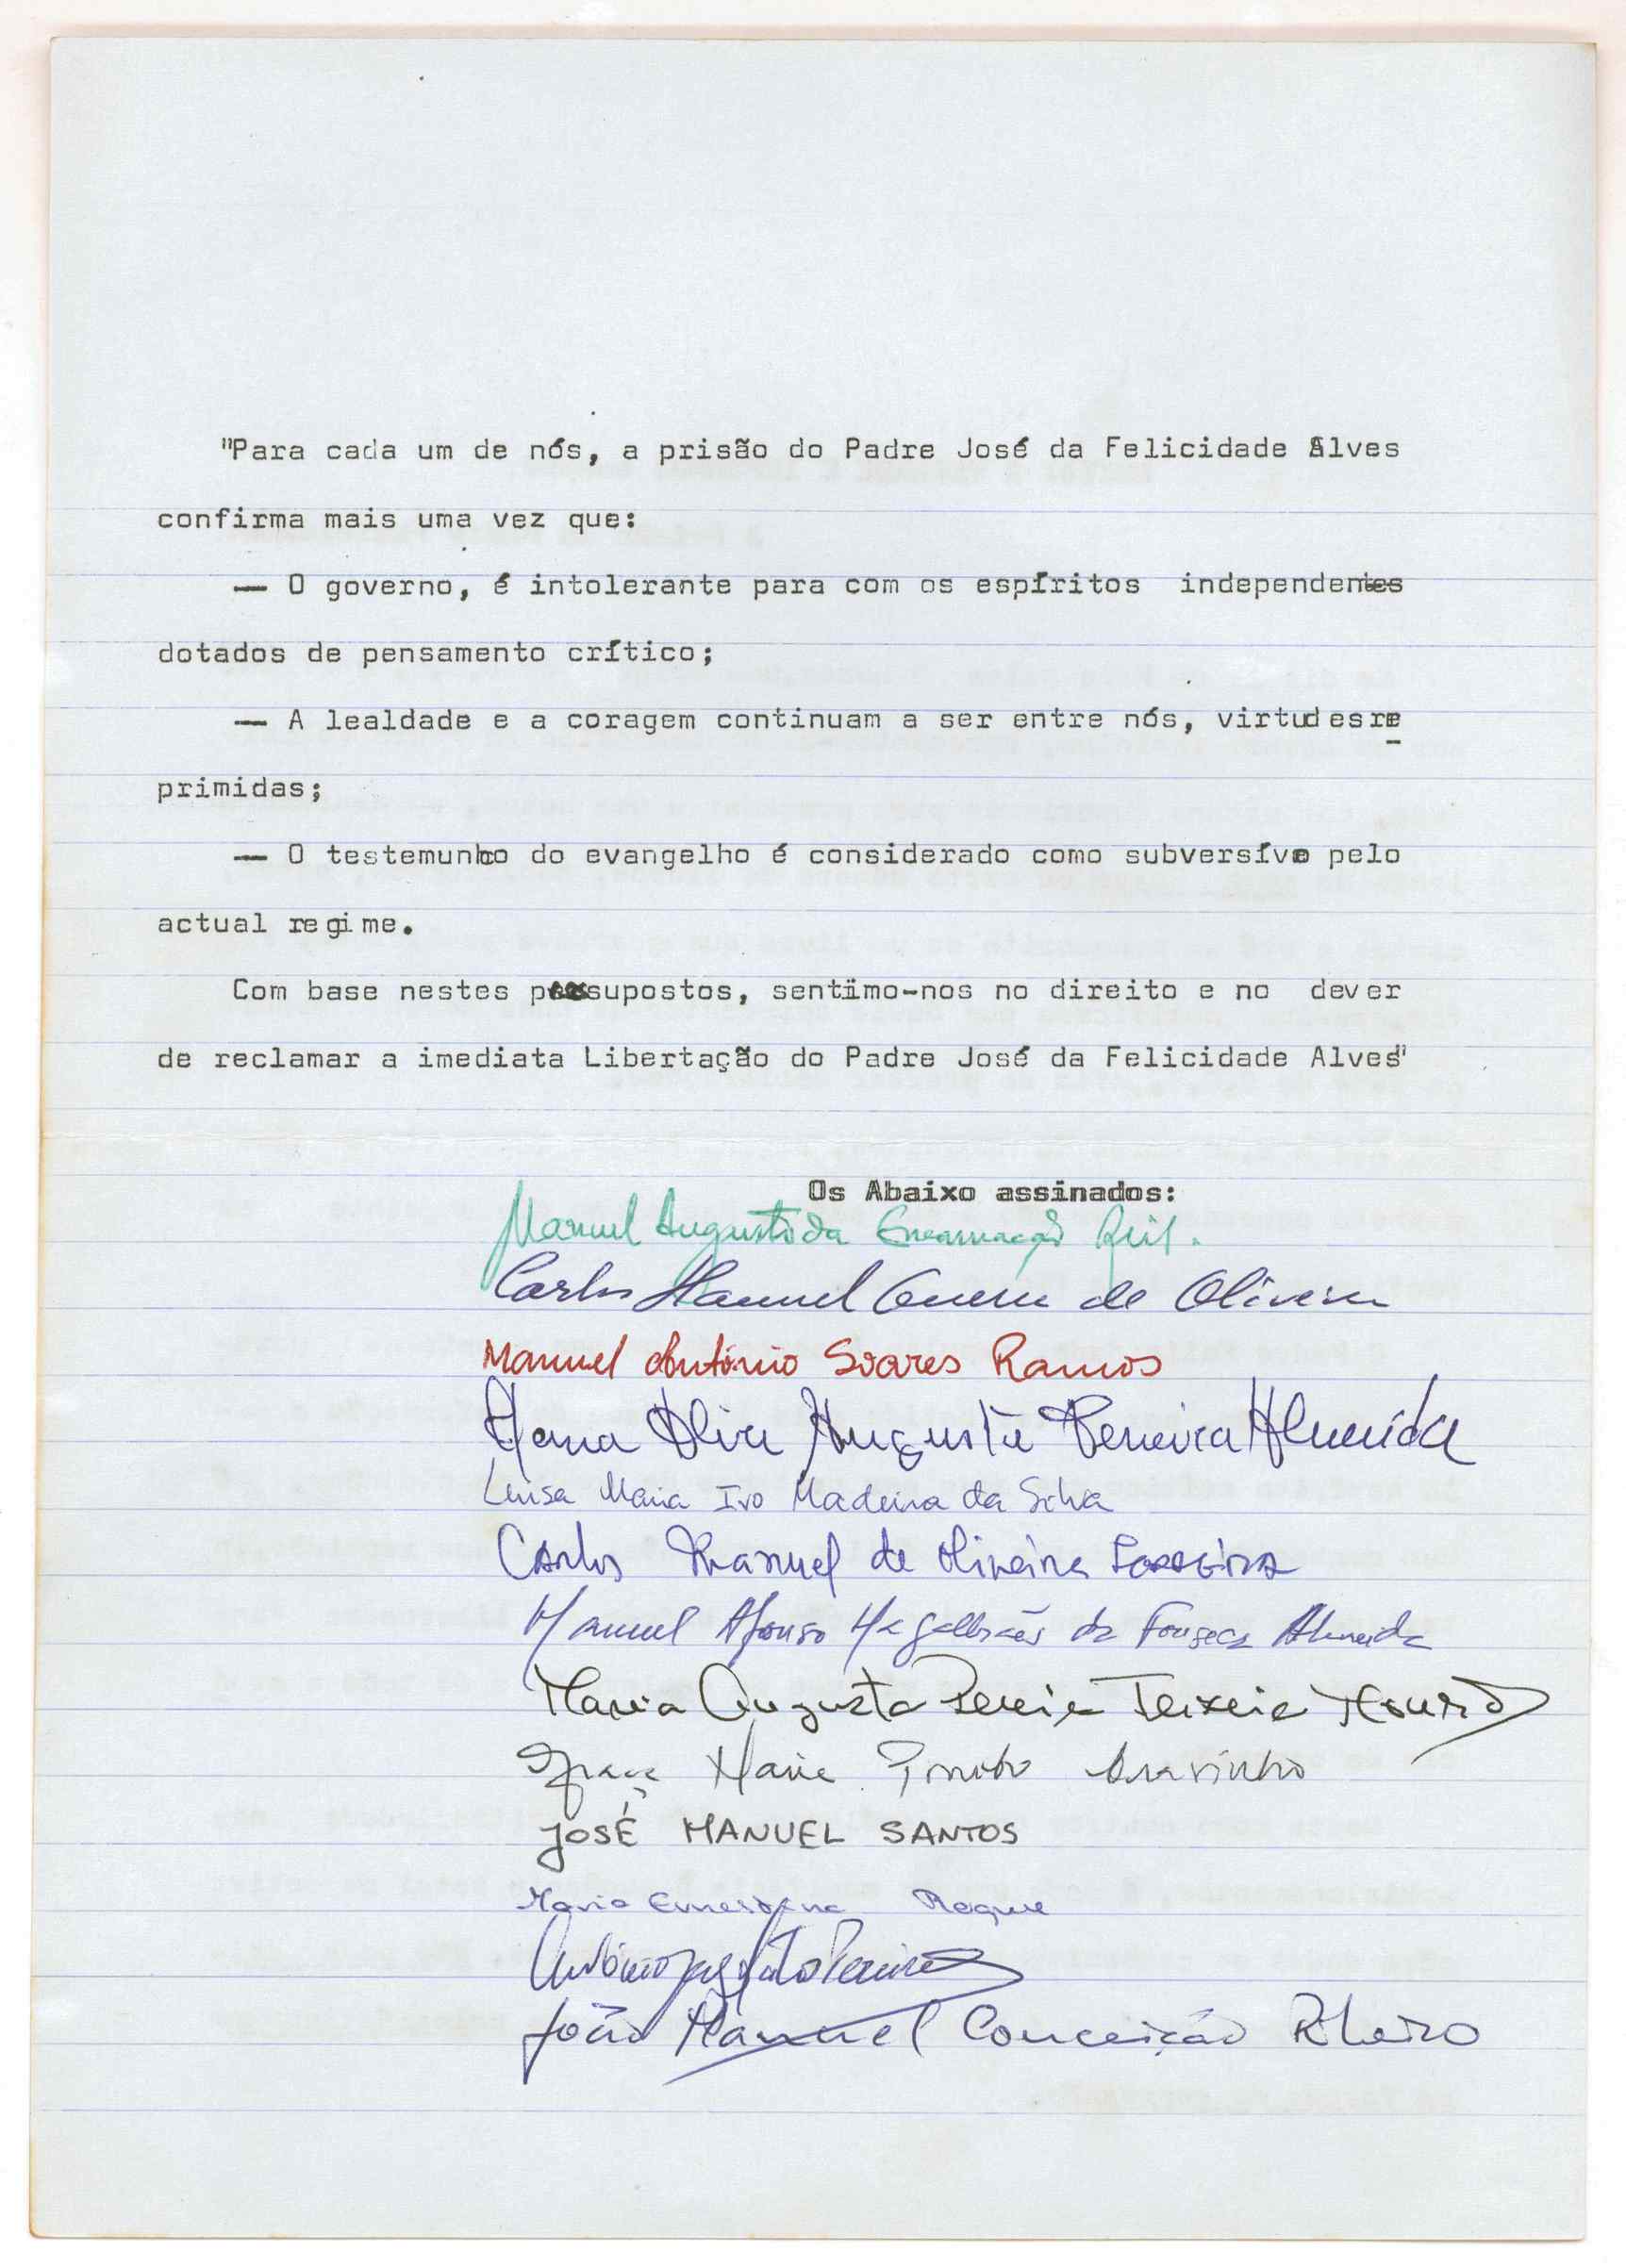 "Para cada um de nós, a prisão do Padre José da Felicidade Alves
confirma mais uma vez que:
— O governo, é intolerante para com os espíritos independentes
dotados de pensamento crítico;
— A lealdade e a coragem continuam a ser entre nós, virtudes re
primidas;
— O testemunho do evangelho é considerado como subversívo pelo
actual regime.
Com base nestes pressupostos, sentimo-nos no direito e no dever
de reclamar a imediata Libertação do Padre José da Felicidade Alves"
Os Abaixo assinados:
Manuel Augusto da Encarnação Reis.
Carlos Manuel Guerra de Oliveira
Manuel António Soares Ramos
Augusta Pereira Almeida
Luisa Maria Ivo Madeira da Silva
Carlos Manuel de Oliveira
Manuel Afonso Magalhães da Fonseca Almeida
Maria Augusta Pereira Teixeira
Graça Maria
JOSÉ MANUEL SANTOS
Maria Roque
António
João Manuel Conceição Ribeiro